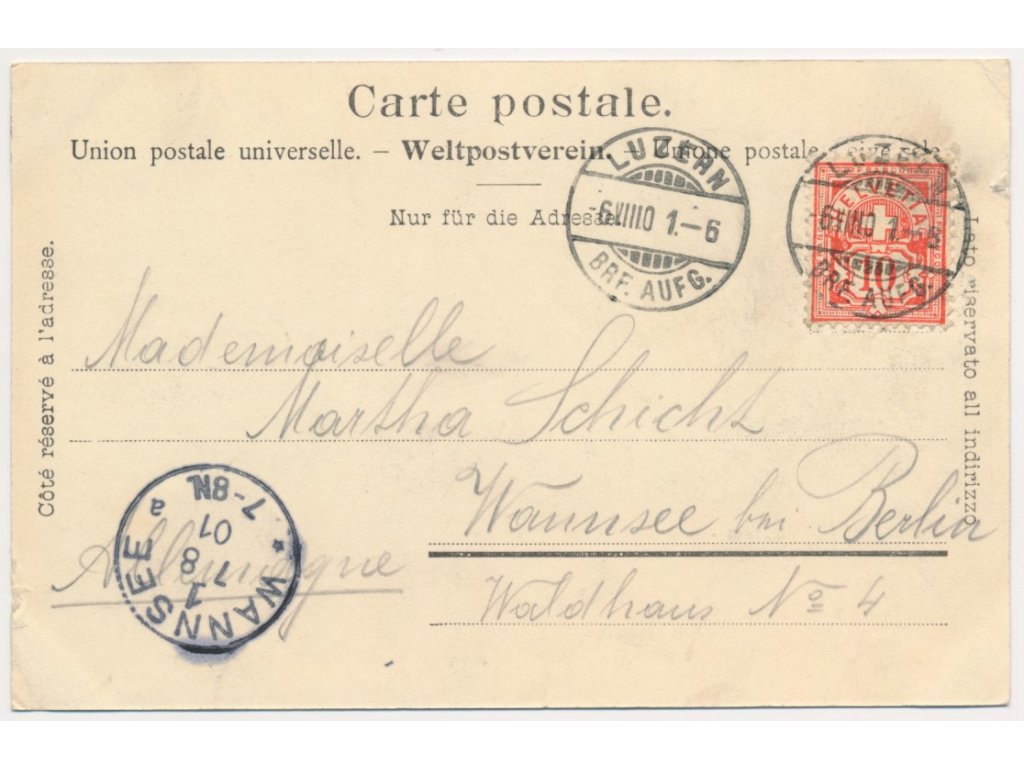 Carte postale.
Union postale universelle. – Weltpostverein. – Unione postale universale
Nur für die Adresse.
LUZERN
-6.VIII.01.–6
BRF. AUFG.
LUZERN
-6.VIII.01.–6
BRF. AUFG.
HELVETIA
10
Côté réservé à l'adresse.
Lato riservato all indirizzo
Mademoiselle
Martha Schicht
Wannsee bei Berlin
Waldhaus No 4
Allemagne
* WANNSEE a
1
7
8
01
7-8N.